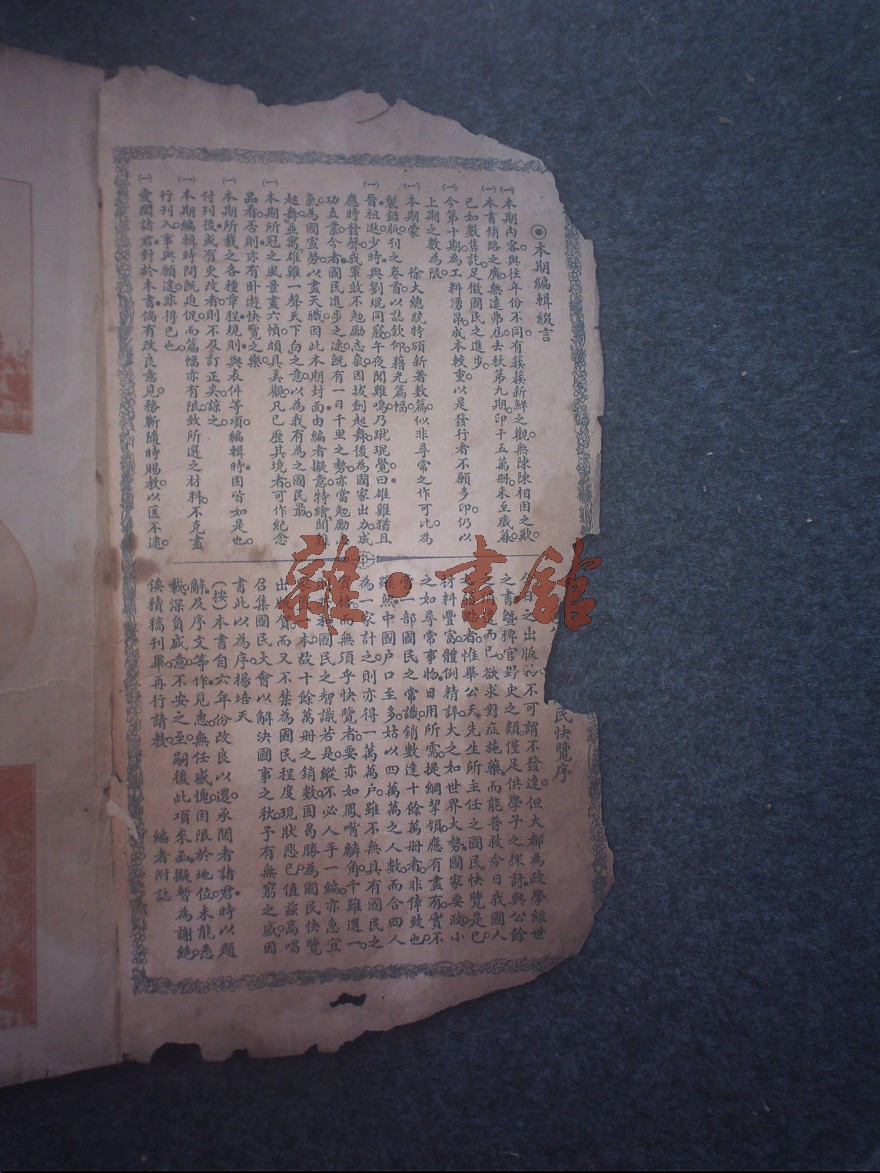 ◉本期編輯綴言
㈠本期內容與往年份不同有簇簇新鮮之觀無陳陳相因之歎
㈠本書銷路之廣無遠弗屆去秋第九期印十五萬冊未至歲暮
已如數售訖足徵國民之進步
㈠今第十期為工料湧昂成本較重以是發行者不願多印仍以
上期之數為限
㈠本期蒙 徐大總統特頒新著數篇似非尋常之作可比為
製鉛版刊之卷首以誌欽仰藉光篇幅
㈠晉祖逖少時與劉琨同寢午夜聞雞鳴乃蹴琨覺曰雄雞猶且
應時發聲我輩敢不勉勵志氣因拔劍起舞後為國家出力成
功立業今者國民進步之速既有一日千里之勢亦當勉勵
氣為國宣勞以盡天職因此本期封面由編者擬意特繪聞雞
起舞並寓雄雞一聲天下白之意以為我有為之國民最
㈠本期所冠之風景畫六幀頗具美觀凡已歷其境者可作紀念
品看否則亦有卧遊快覽之樂
㈠本期所載之各種章程規則與表件等項編輯時固皆如是也
付刊後或有更改者則不及訂正矣諒之
㈠本期編輯時間既迫促而篇幅亦有限致所選之材料不克盡
行刊入事與願違非得已也
㈠愛閱諸君對於本書倘有改良意見務蘄隨時賜教以匡不逮
民快覽序
日之出版物不可謂不發達但大都為政學經世
之書暨稗官野史之類僅足供學子之探討與公餘
之而已欲求對症施藥而能普救今日我國人
者惟畢公天先生所主任之國民快覽是已
材料豐富體例精詳大之如世界大勢國家要政小
之如尋常事物日用所需提綱挈領應有盡有實不
一部國民之常識銷數達十餘萬冊者非偉致也
雖然中國戶口至多姑以四萬萬之人數而合四人
為一家計之則亦得一萬萬戶雖不無具有國民之
而無須乎快覽者要亦如鳳嘴麟角千雖選一
國民之智識若是縱不必人手一編亦急宜
本故十餘萬冊之銷數固曷勝為國民快覽
出版賀而又不禁為國民程度現狀悲已值茲高唱
召集國民大會以解決國事之秋予有無窮之感因
書此以為序揚培天
（按）本書自六年份改良以還承閱者諸君時以題
辭及序文等作見惠無任感愧因限於地位未能悉
載深負盛意不安之至嗣後此項來函擬暫為謝絕
俟積稿刊畢再行請教 編者附誌
雜·書館